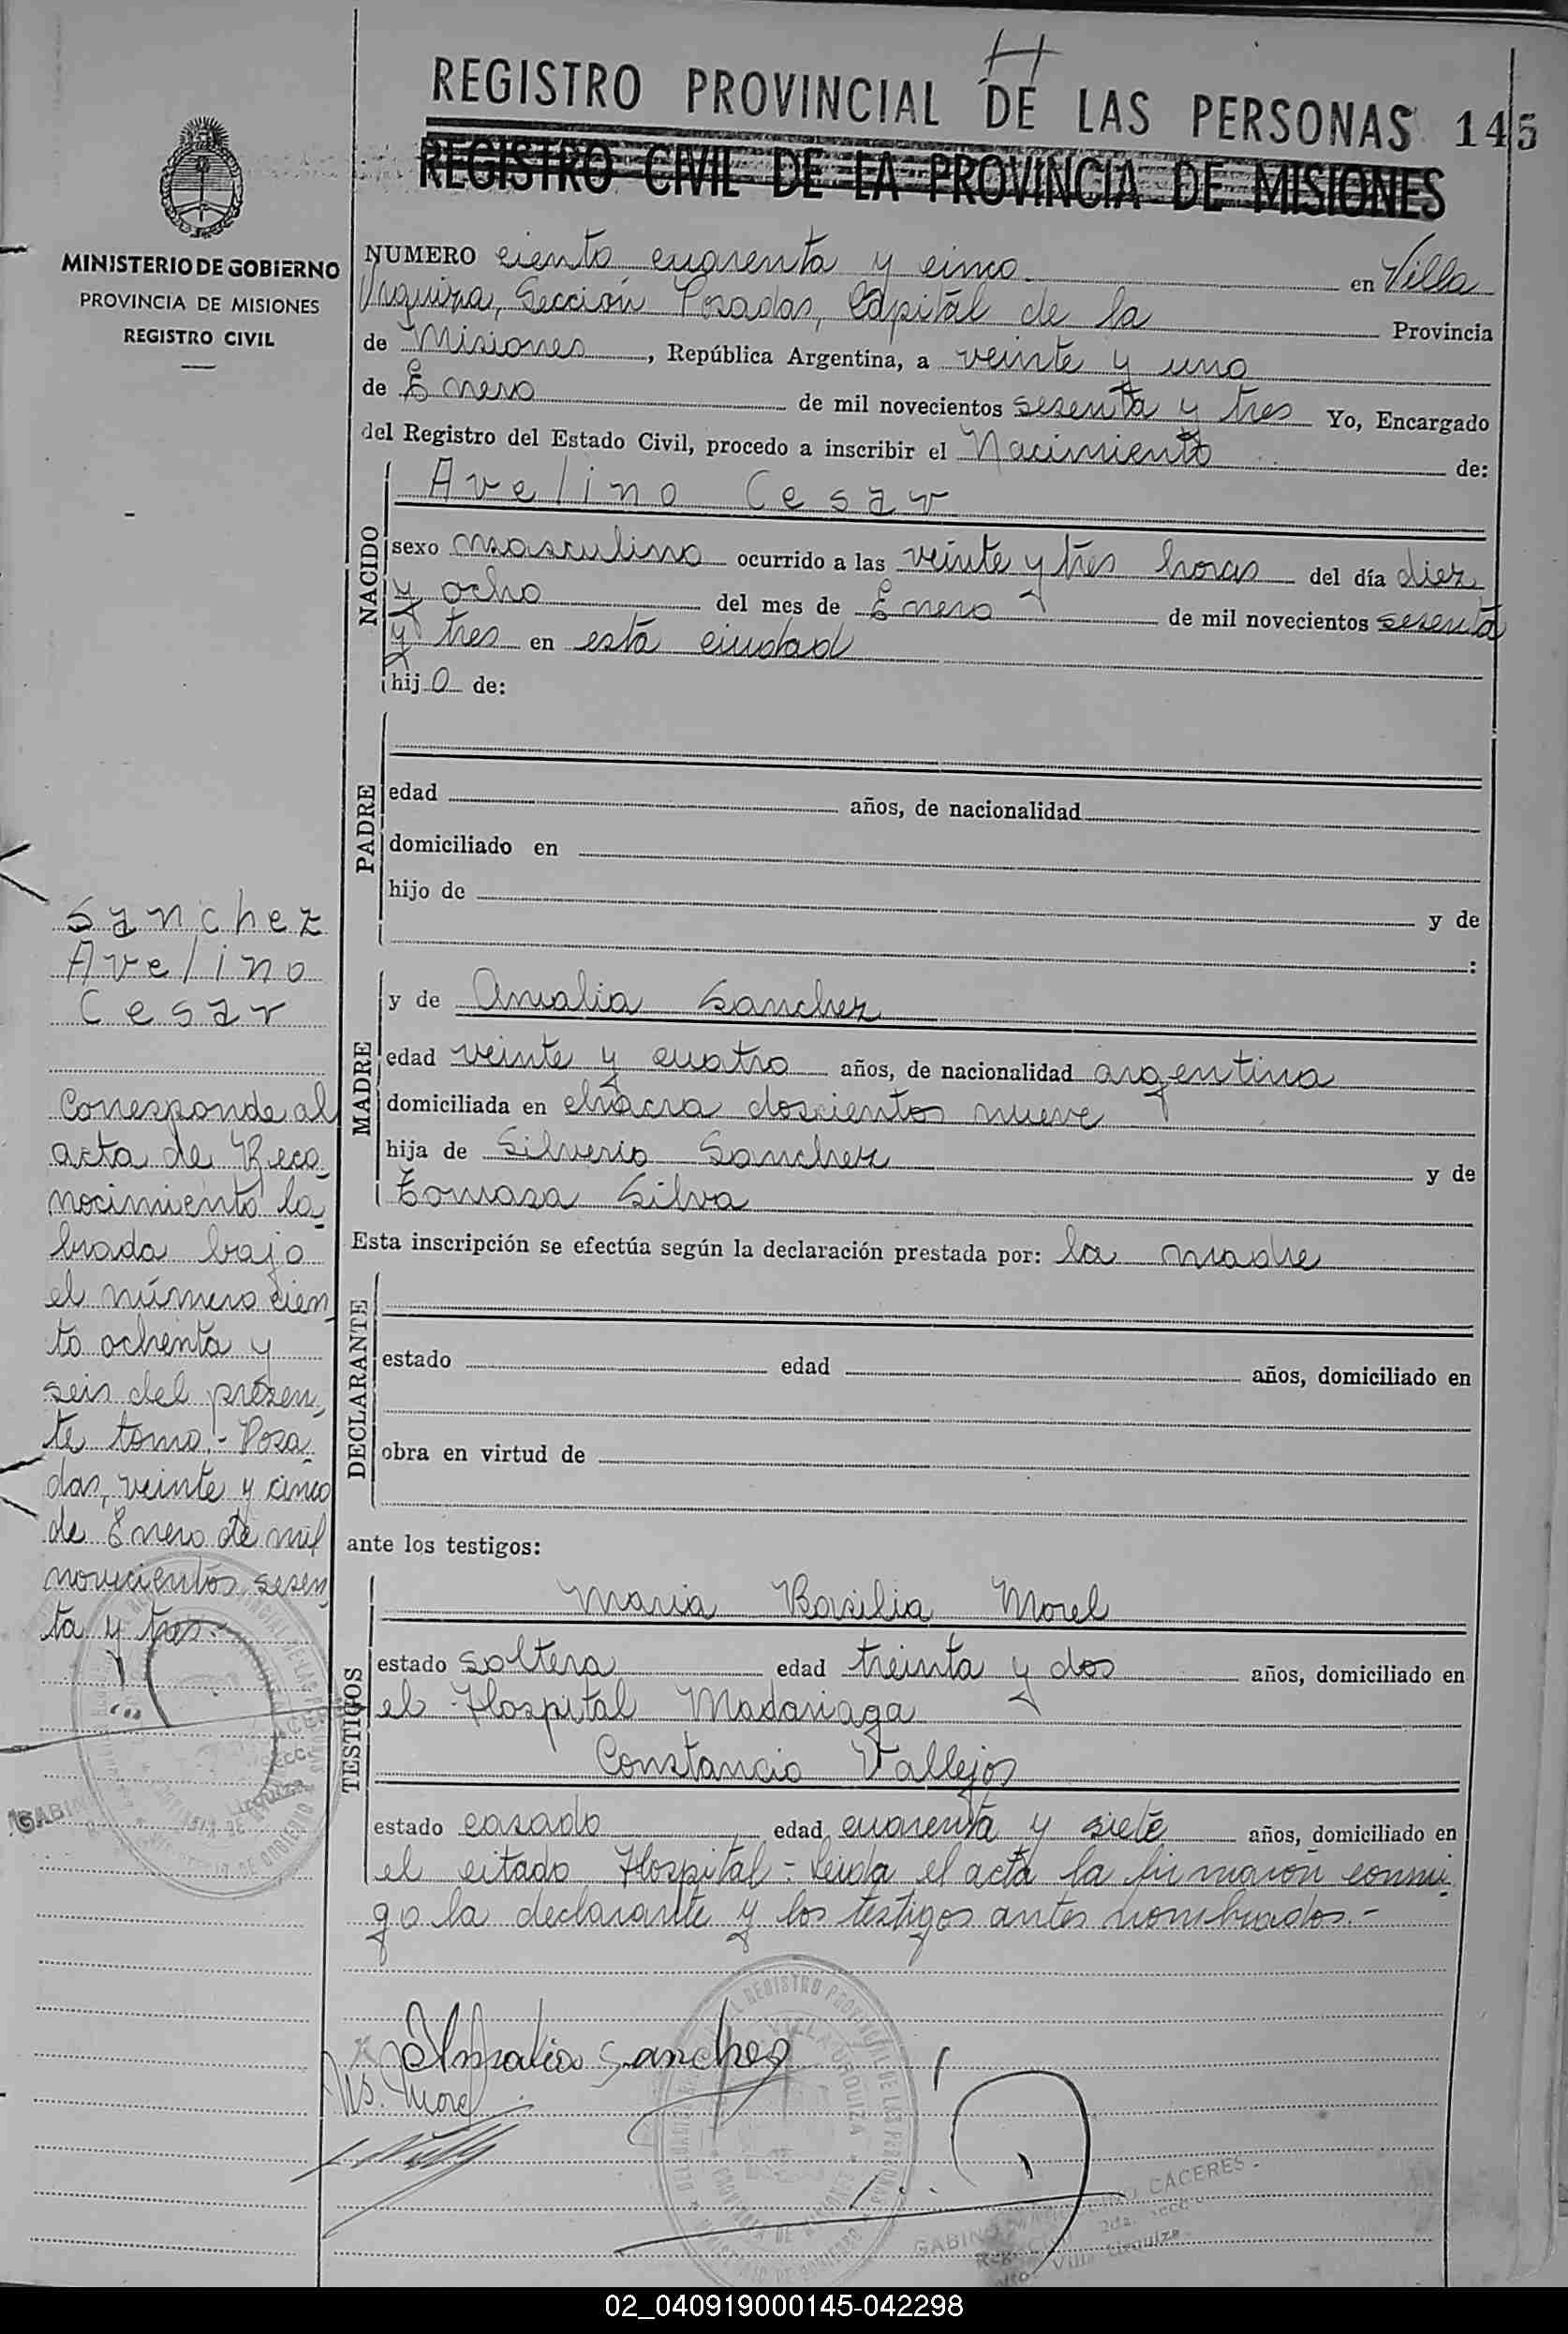 H
REGISTRO PROVINCIAL DE LAS PERSONAS 145
REGISTRO CIVIL DE LA PROVINCIA DE MISIONES
MINISTERIO DE GOBIERNO
PROVINCIA DE MISIONES
REGISTRO CIVIL
NUMERO ciento cuarenta y cinco en Villa
Urquiza, Sección Posadas, Capital de la Provincia
de Misiones, República Argentina, a veinte y uno
de Enero de mil novecientos sesenta y tres Yo, Encargado
del Registro del Estado Civil, procedo a inscribir el Nacimiento de:
NACIDO
Avelino Cesar
sexo masculino ocurrido a las veinte y tres horas del día diez
y ocho del mes de Enero de mil novecientos sesenta
y tres en esta ciudad
hijo de:
PADRE
edad años, de nacionalidad
domiciliado en
hijo de y de
:
MADRE
y de Amalia Sanchez
edad veinte y cuatro años, de nacionalidad argentina
domiciliada en chacra doscientos nueve
hija de Silverio Sanchez y de
Tomasa Silva
Esta inscripción se efectúa según la declaración prestada por: la madre
DECLARANTE
estado edad años, domiciliado en
obra en virtud de
ante los testigos:
TESTIGOS
Maria Basilia Morel
estado soltera edad treinta y dos años, domiciliado en
el Hospital Madariaga
Constancio Vallejos
estado casado edad cuarenta y siete años, domiciliado en
el citado Hospital - Leida el acta la firmaron conmi-
go la declarante y los testigos antes nombrados.-
Amalia Sanchez
Bs. Morel
GABINO CACERES
2da. Secc.
Villa Urquiza
Sanchez
Avelino
Cesar
Corresponde al
acta de Reco-
nocimiento la-
brada bajo
el número cien-
to ochenta y
seis del presen-
te tomo.- Posa-
das, veinte y cinco
de Enero de mil
novecientos sesen-
ta y tres.-
02_040919000145-042298